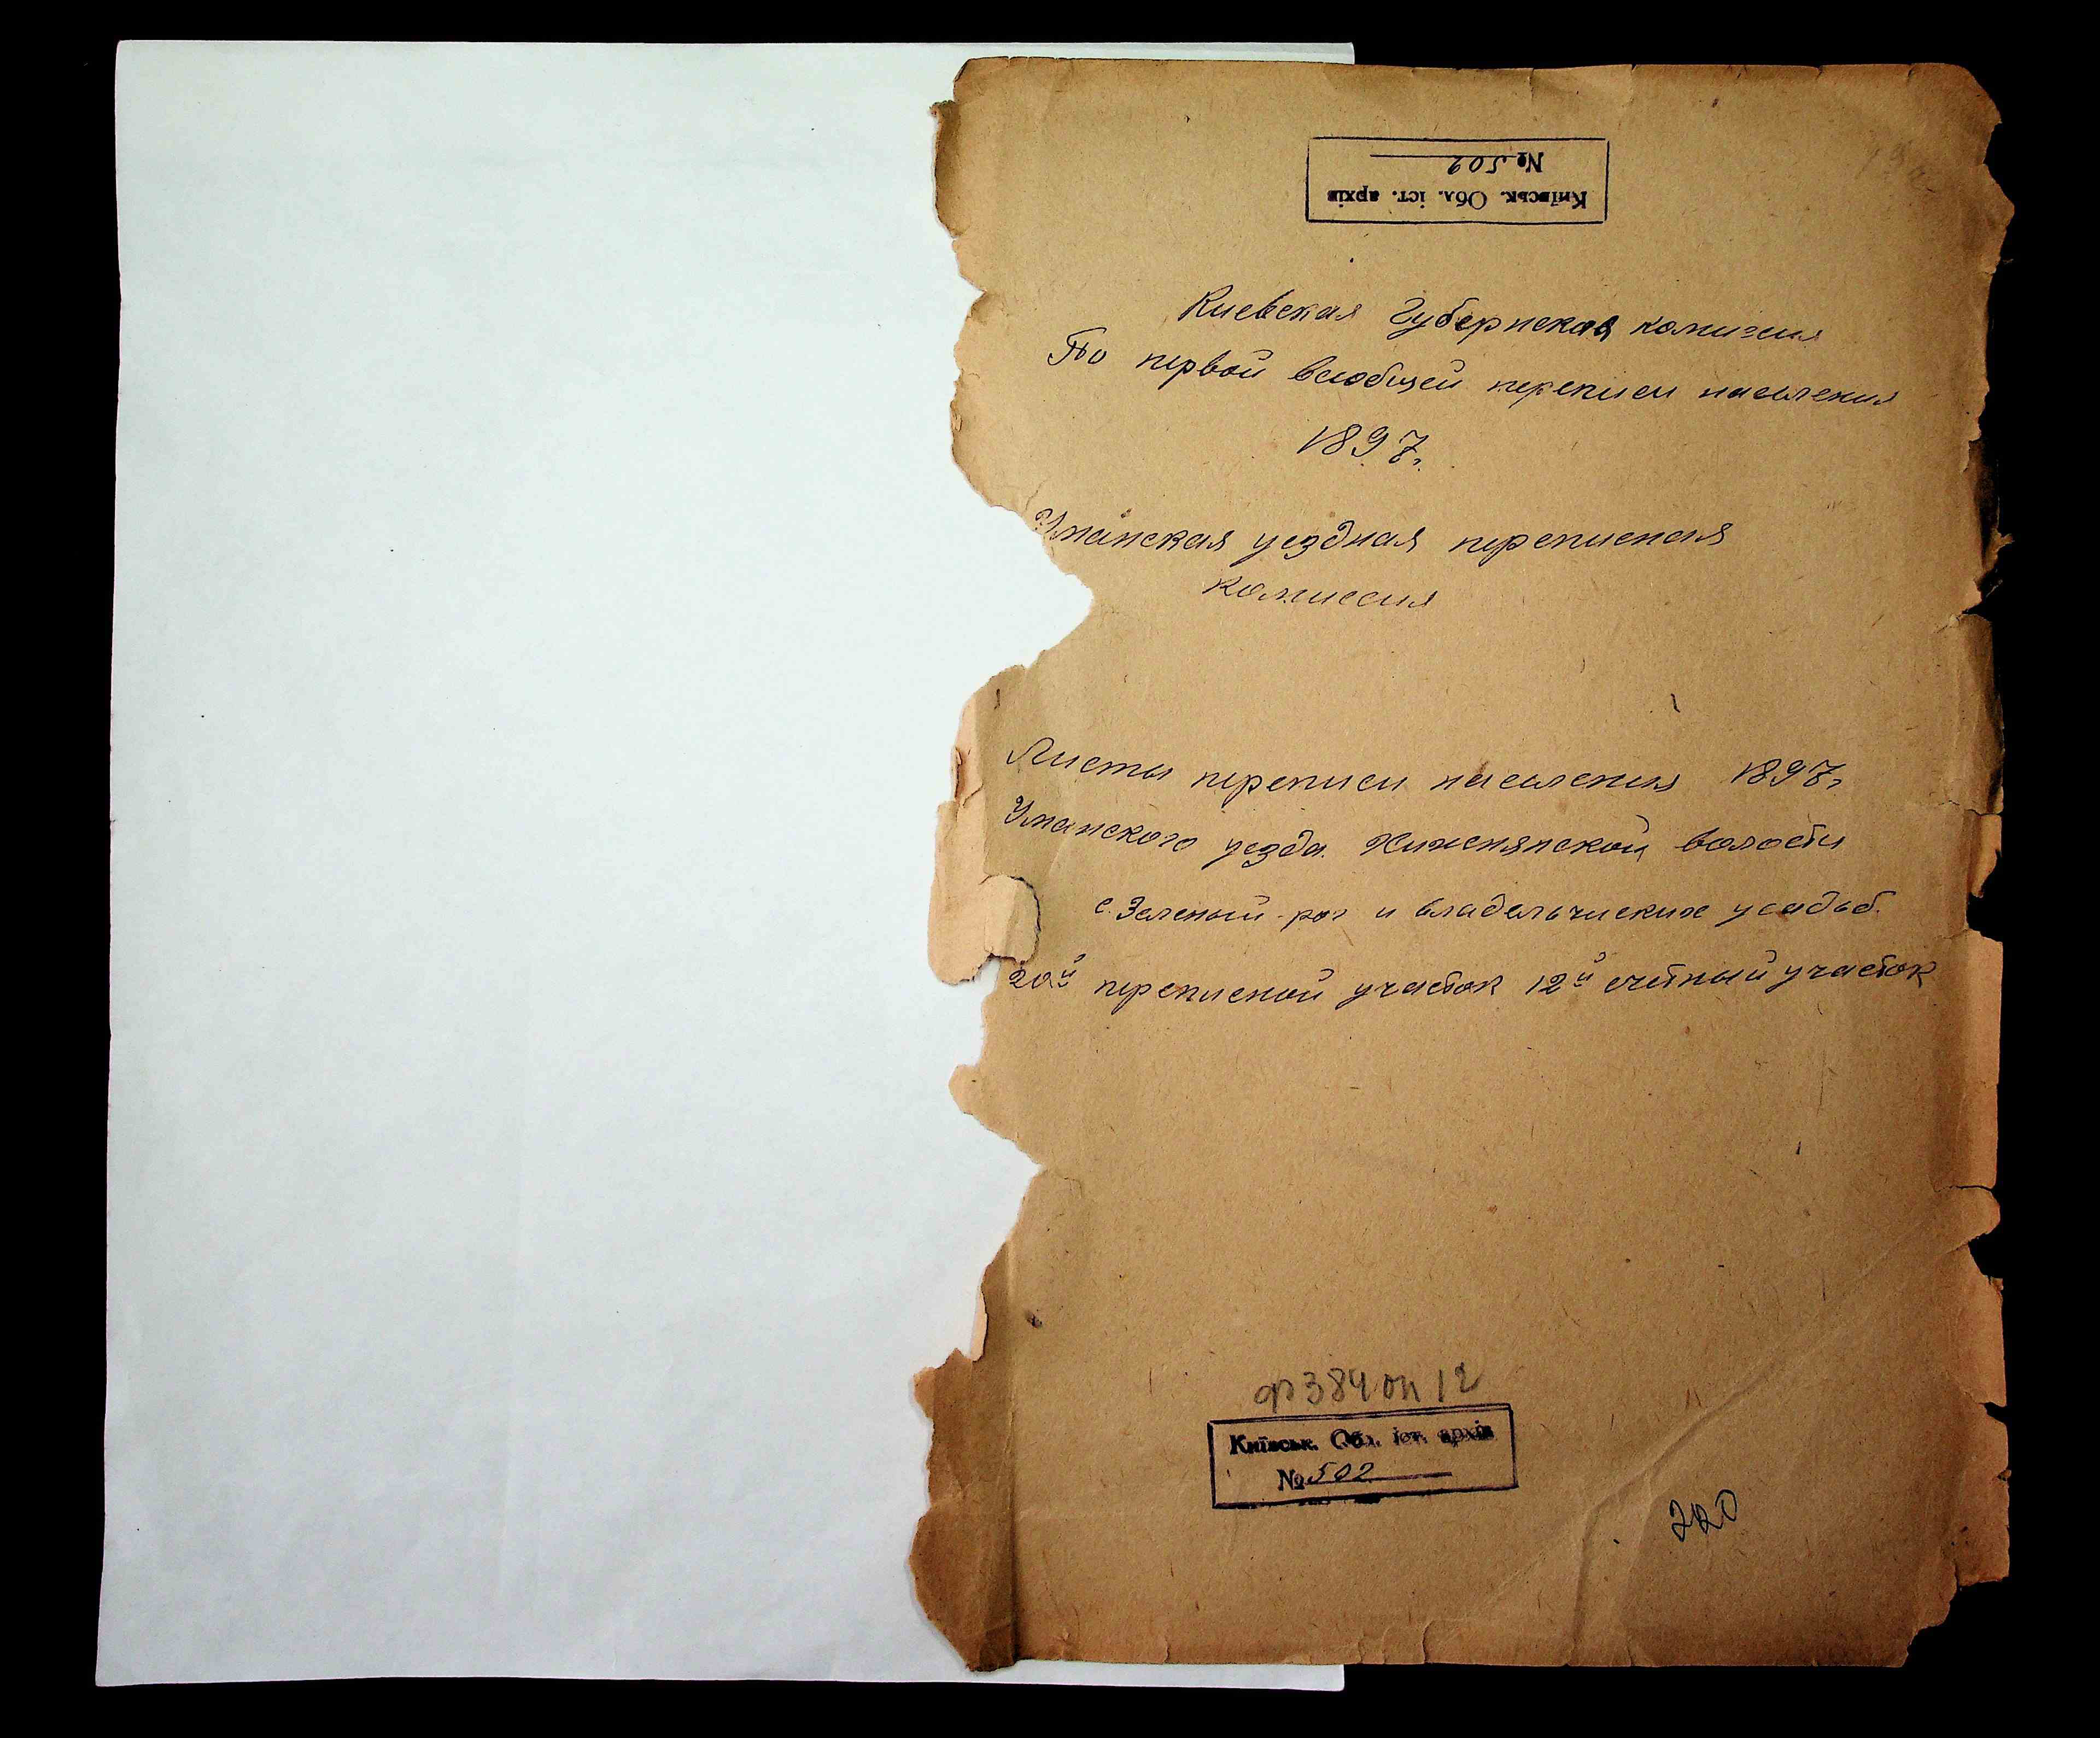 Київськ. Обл. іст. архів
№ 502
Киевская Губернская комисия
По первой всеобщей переписи населения
1897г.
Уманская уездная переписная
комиссия
Листы переписи населения 1897г.
Уманского уезда Хижнянской волости
с. Зеленый-рог и владельческих усадьб.
20й переписной участок 12й счётный участок
ф384 оп 12
Київськ. Обл. іст. архів
№ 502
220